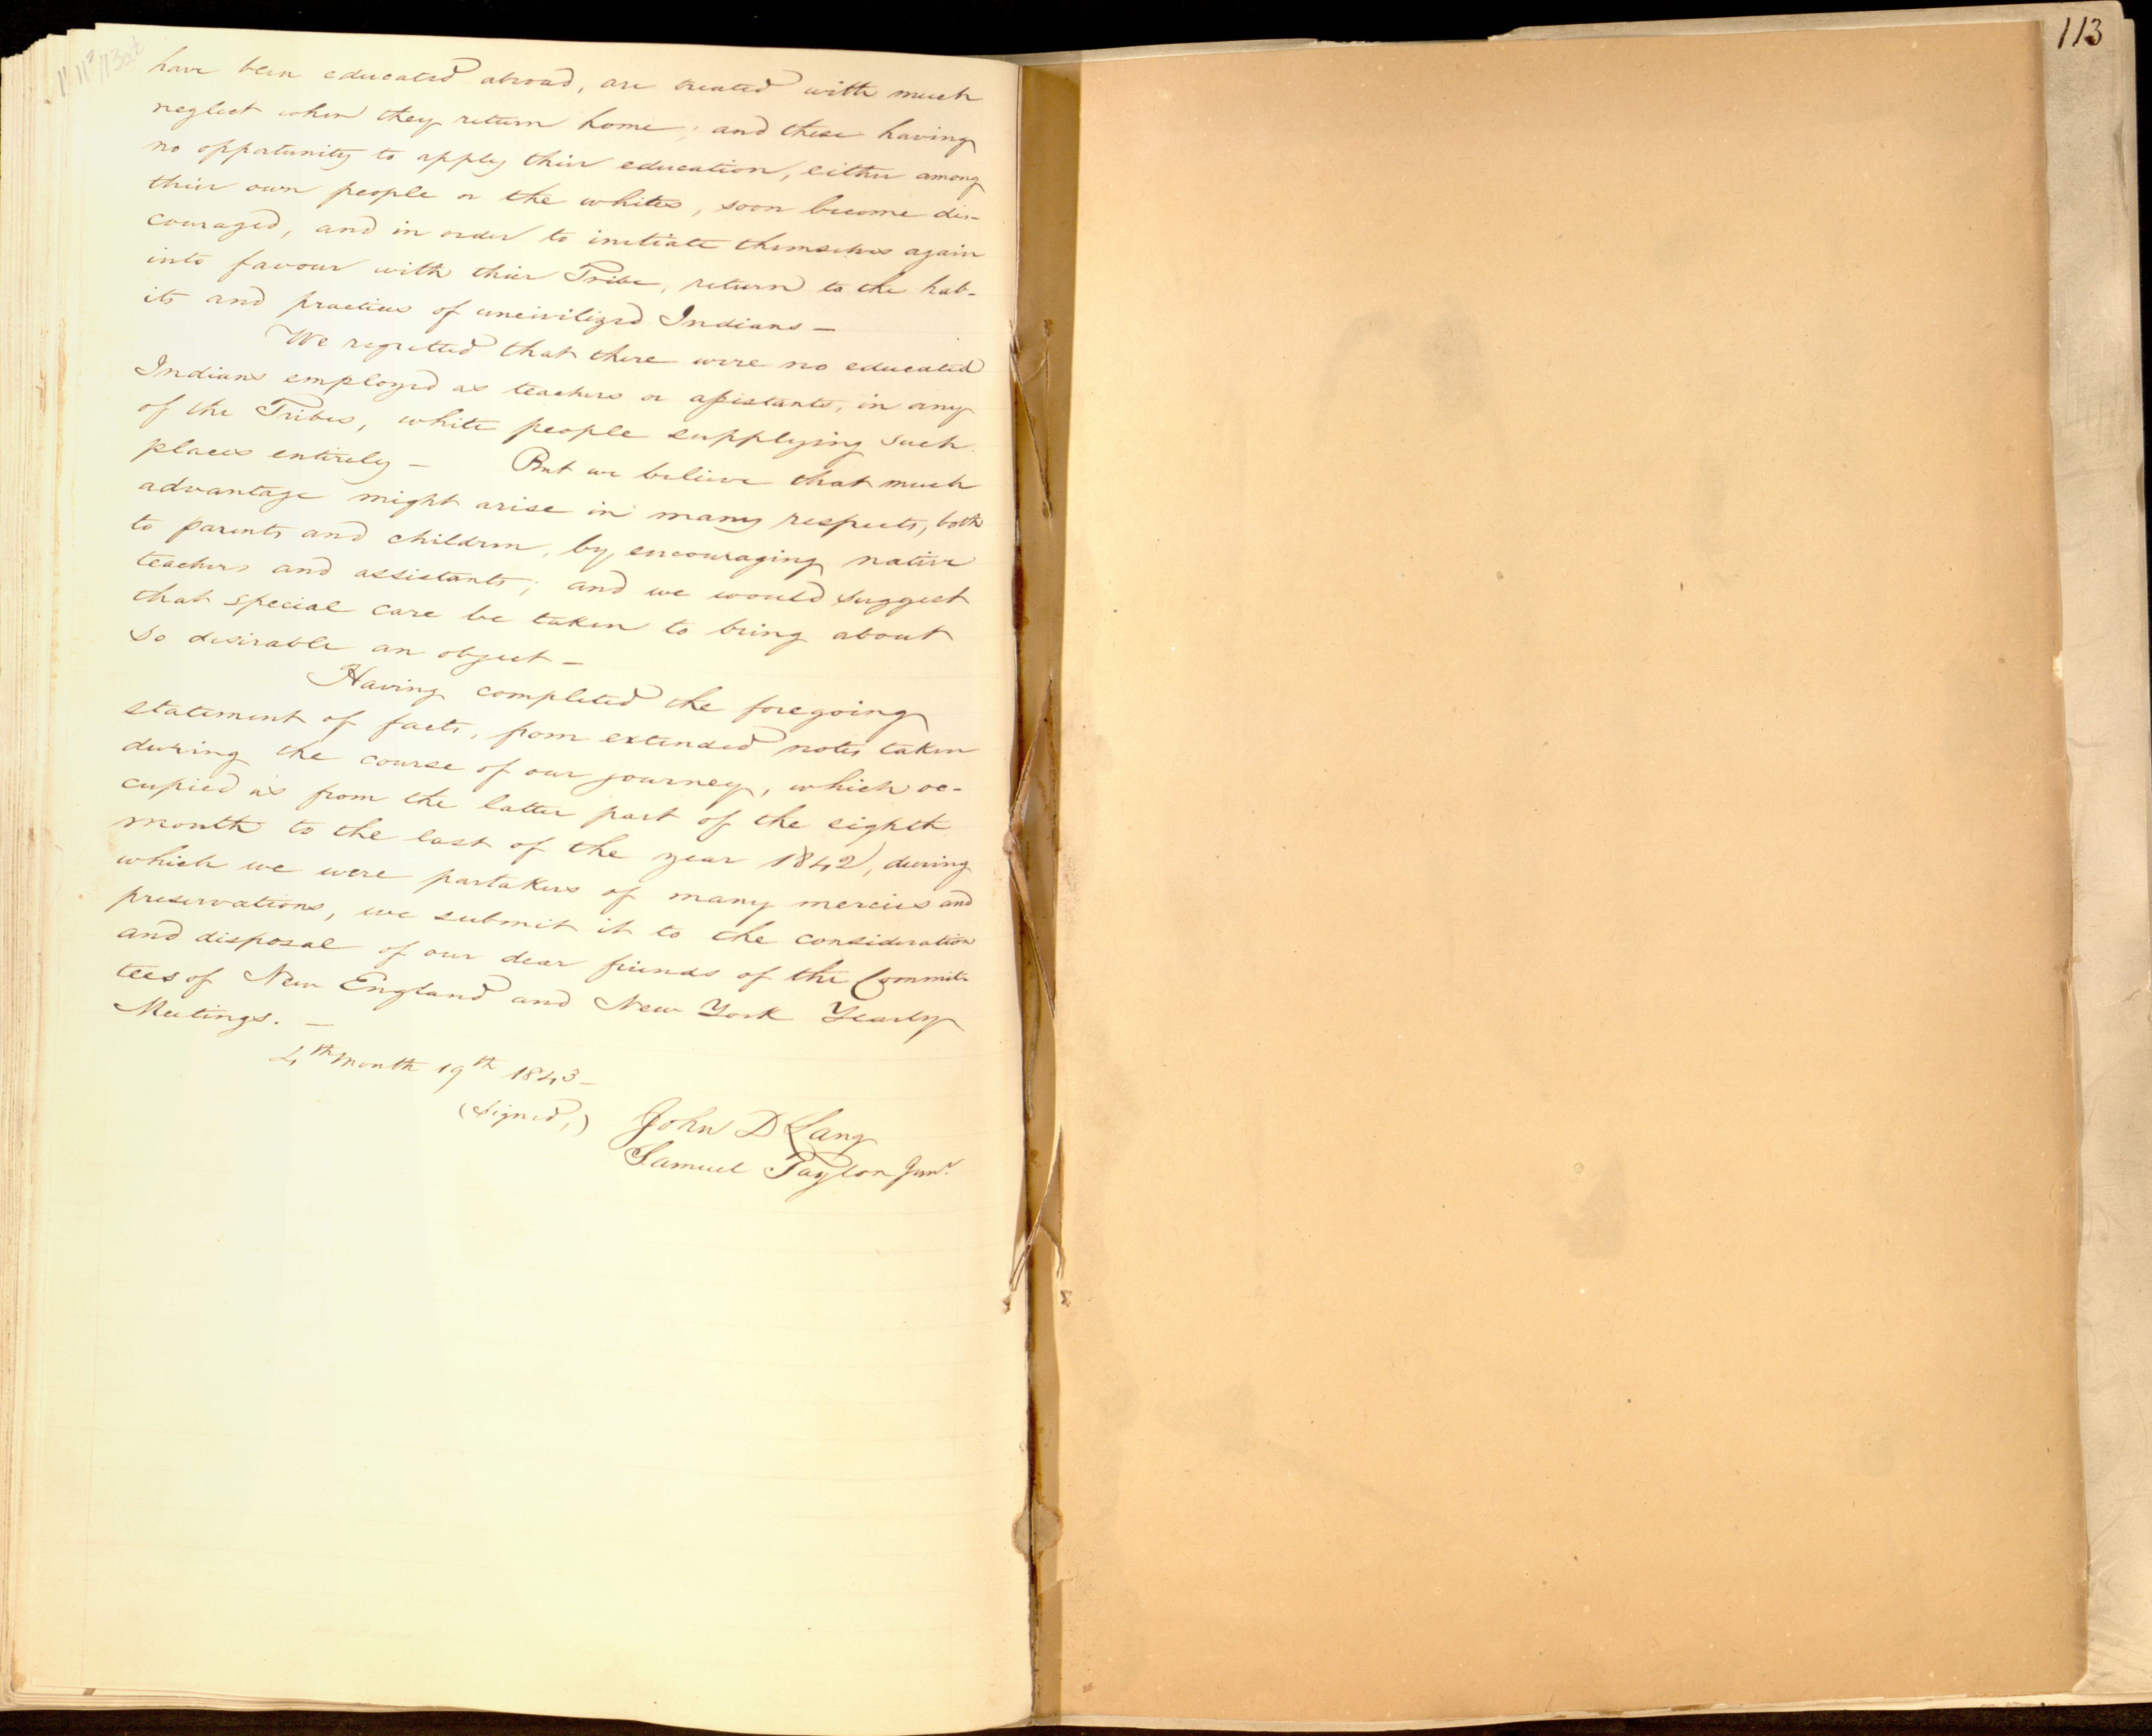 have been educated abroad, are treated with much
neglect when they return home; and these having
no opportunity to apply their education, either among
their own people or the whites, soon become dis-
couraged, and in order to initiate themselves again
into favour with their Tribe, return to the hab-
its and practices of uncivilized Indians —
We regretted that there were no educated
Indians employed as teachers or assistants, in any
of the Tribes, white people supplying such
places entirely — But we believe that much
advantage might arise in many respects, both
to parents and children, by encouraging native
teachers and assistants; and we would suggest
that special care be taken to bring about
so desirable an object —
Having completed the foregoing
statement of facts, from extended notes taken
during the course of our journey, which oc-
cupied us from the latter part of the eighth
month to the last of the year 1842, during
which we were partakers of many mercies and
preservations, we submit it to the consideration
and disposal of our dear friends of the Commit-
tees of New England and New York Yearly
Meetings. —
4th month 19th 1843 —
(Signed,) John D Lang
Samuel Taylor Junr.
113